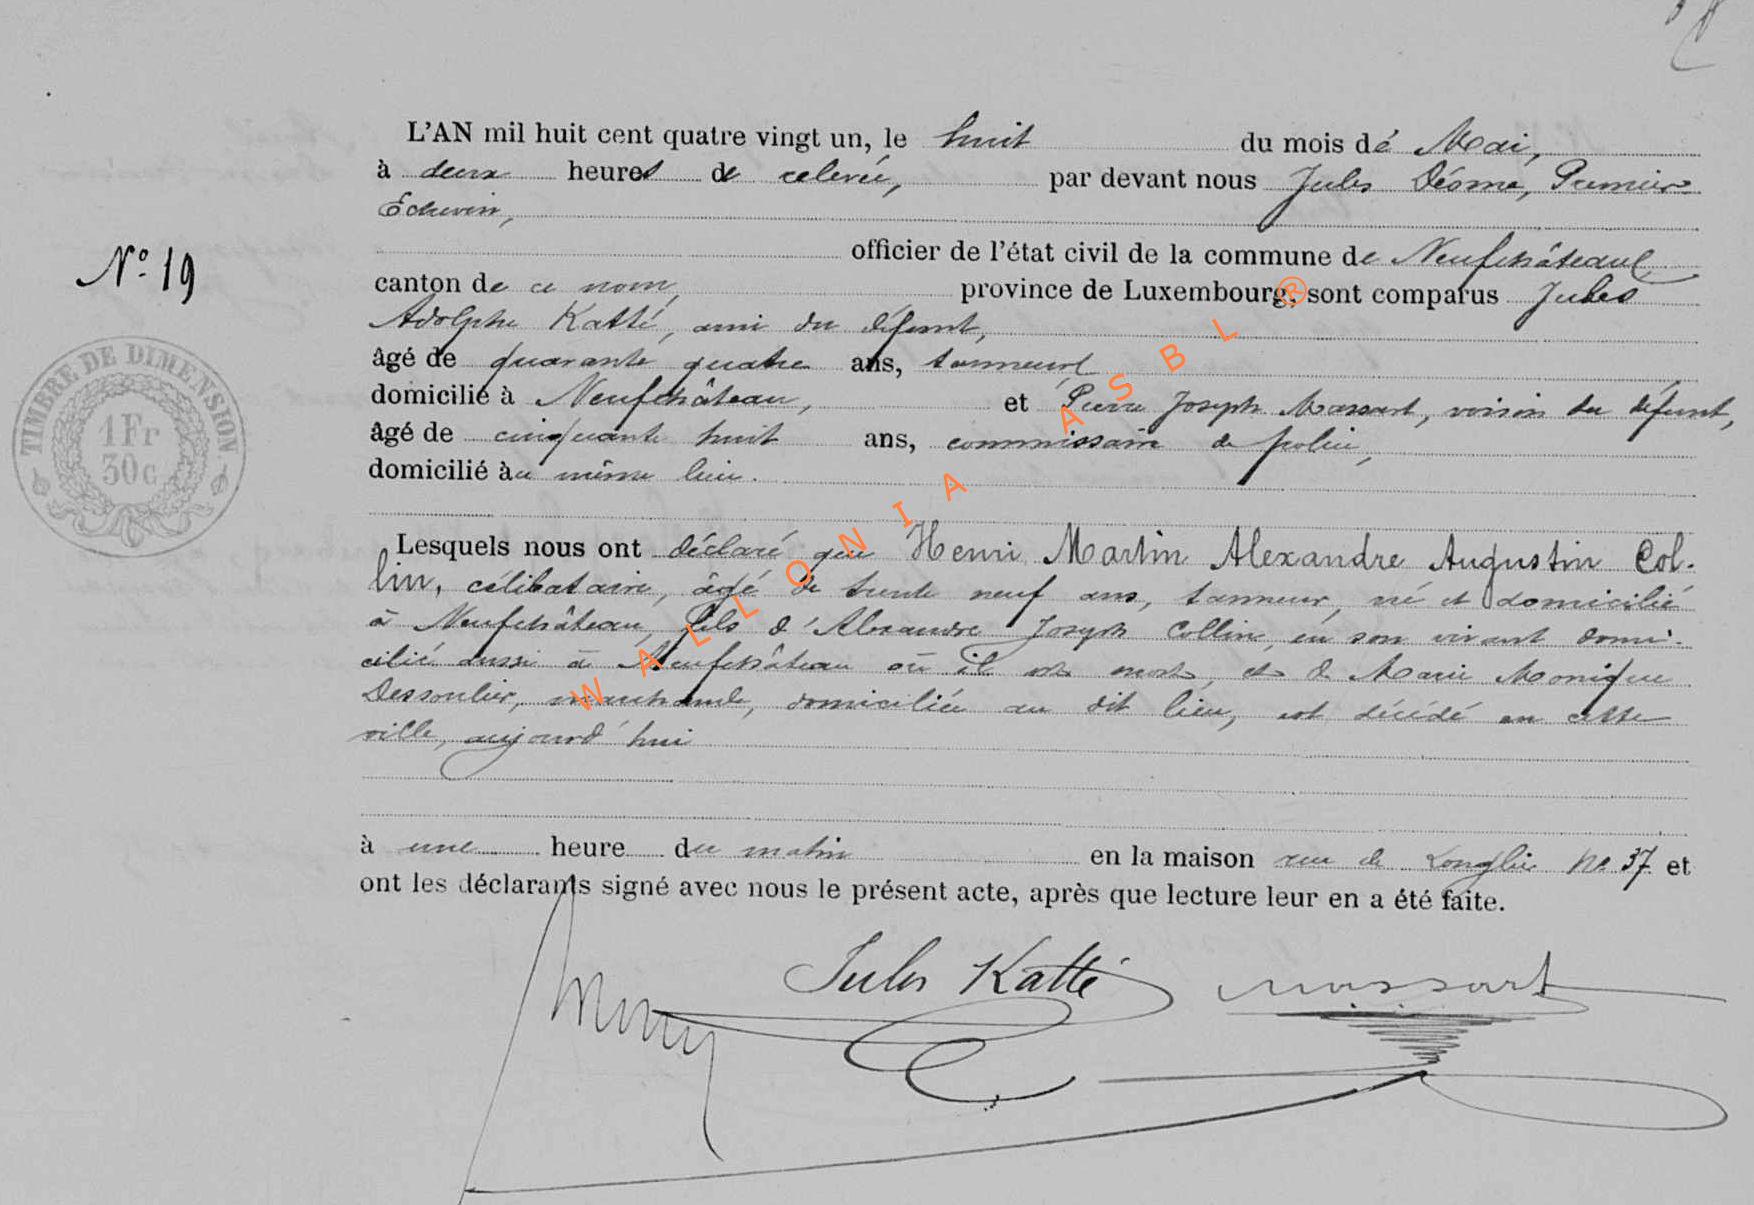 L'AN mil huit cent quatre vingt un, le huit du mois de Mai,
à deux heures de relevée, par devant nous Jules Désmé, Premier
Echevin,
officier de l'état civil de la commune de Neufchâteau
N° 19
canton de ce nom, province de Luxembourg, sont comparus Jules
Adolphe Katté, ami du défunt,
âgé de quarante quatre ans, tanneur
domicilié à Neufchâteau, et Pierre Joseph Massart, voisin du défunt,
âgé de cinquante huit ans, commissaire de police,
domicilié au même lieu.
TIMBRE DE DIMENSION
1Fr
30c
Lesquels nous ont déclaré que Henri Martin Alexandre Augustin Col-
lin, célibataire, âgé de trente neuf ans, tanneur, né et domicilié
à Neufchâteau, fils d'Alexandre Joseph Collin, en son vivant domi-
cilié aussi à Neufchâteau où il est mort, et de Marie Monique
Dessoulier, marchande, domiciliée au dit lieu, est décédé en cette
ville, aujourd'hui
à une heure du matin en la maison rue de Longlier No 37 et
ont les déclarants signé avec nous le présent acte, après que lecture leur en a été faite.
Jules Katté Massart
WALLONIA ASBL ®